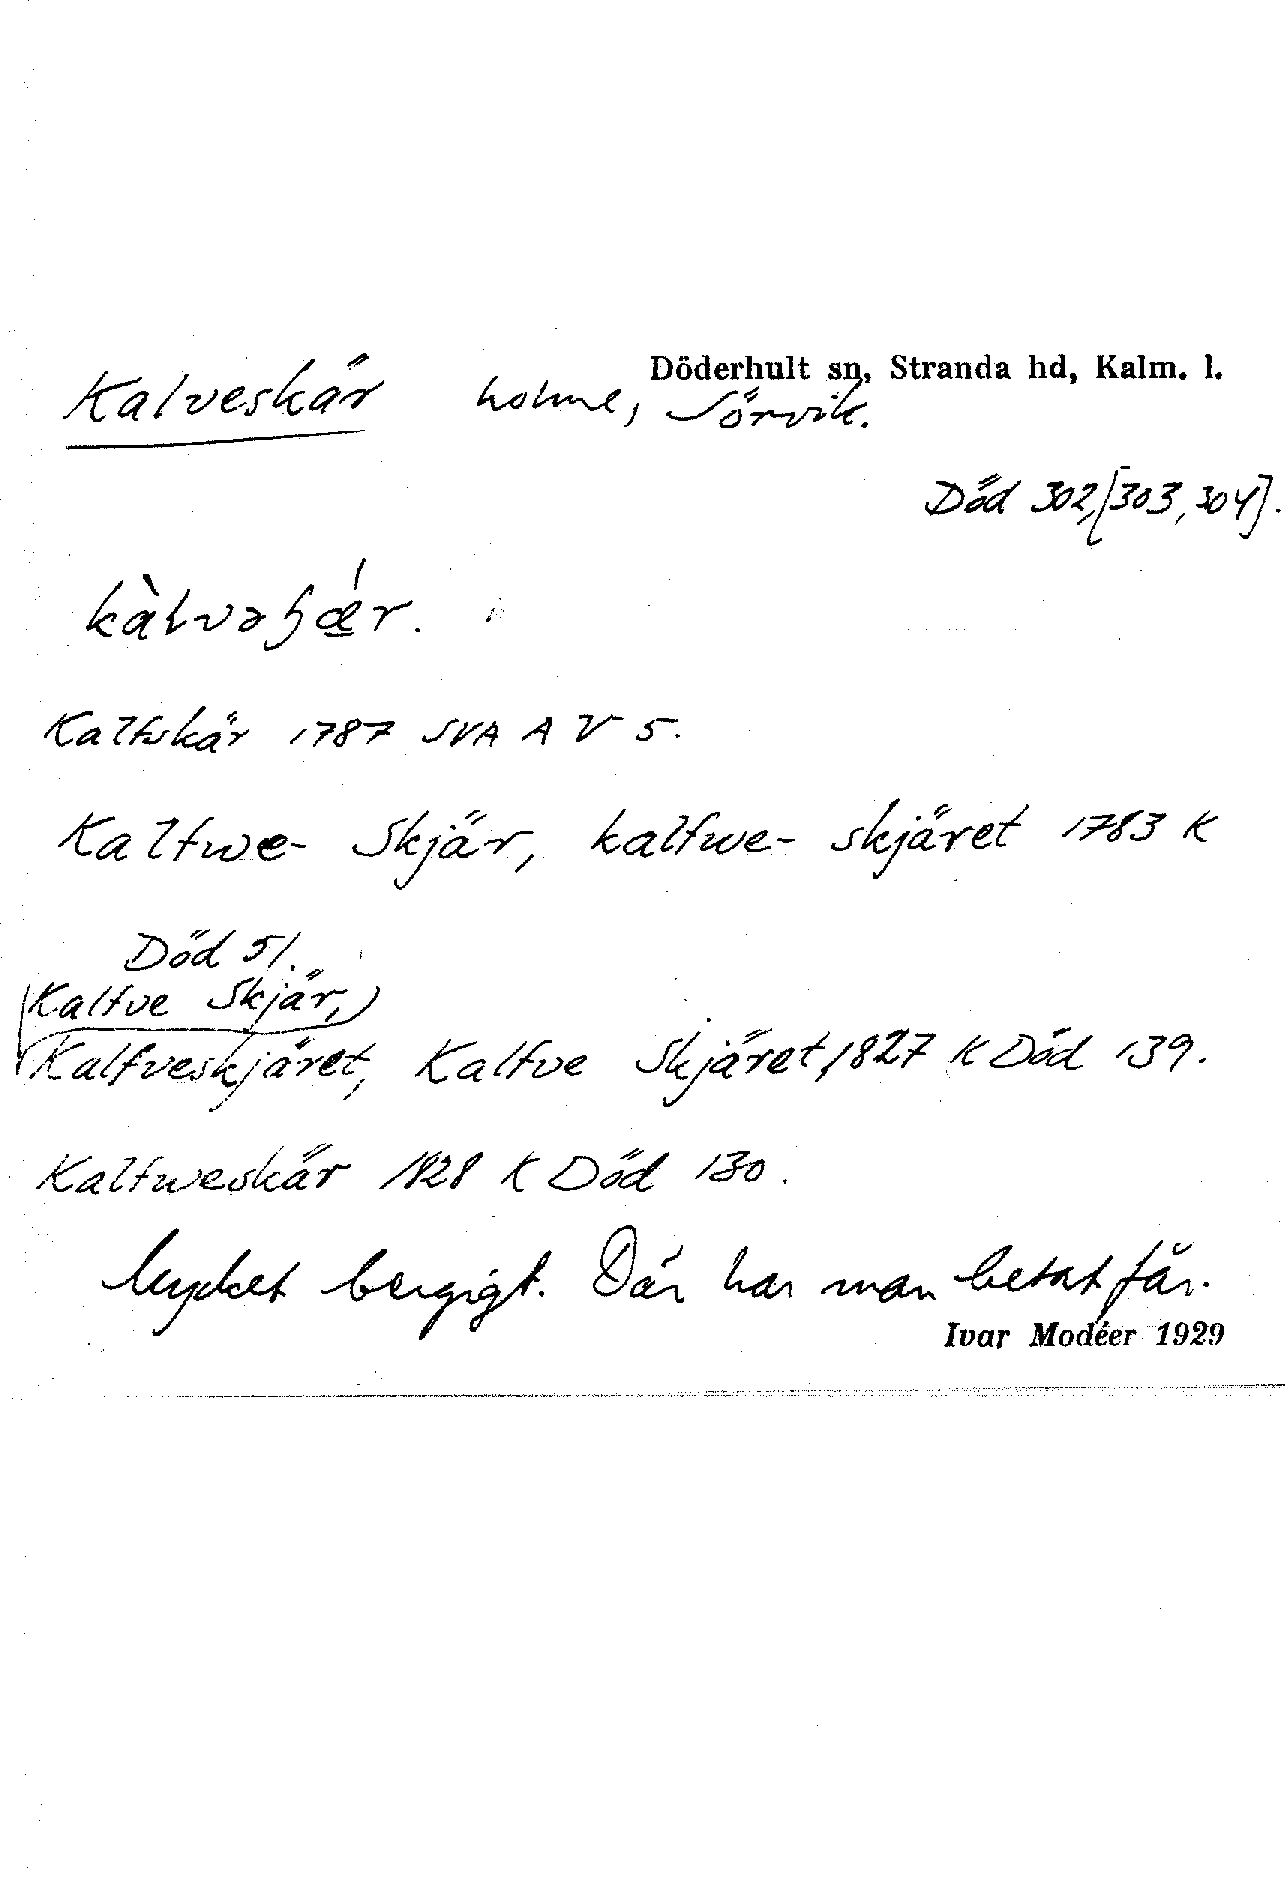 Döderhult sn, Stranda hd, Kalm. l.
Kalveskär holme, Sörvik.
Död 302, [303, 304].
kàlvəɧǽ̲r.
Kalfskär 1787 SVA A V 5.
Kalfwe- Skjär, kalfwe- skjäret 1783 K
Död 51.
Kalfve Skjär,
Kalfveskjäret, Kalfve Skjäret, 1827 K Död 139.
Kalfweskär 1828 K Död 130.
Mycket bergigt. Där har man betat får.
Ivar Modéer 1929